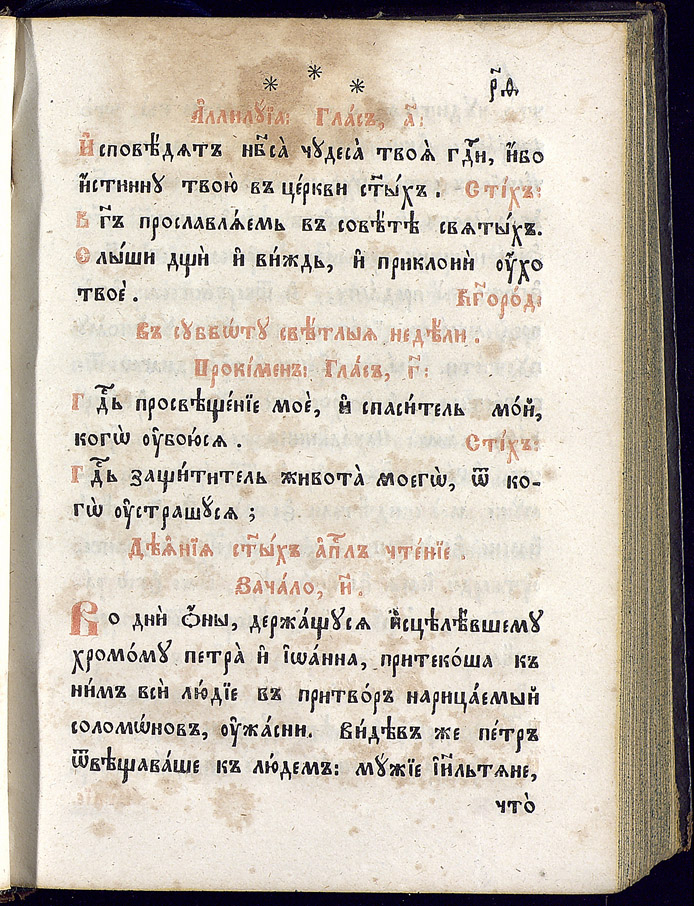 * * * р҃ѳ
А҆ллилꙋ́їа: Гла́съ, а҃:
И҆сповѣ́дѧтъ нб҃са̀ чꙋдеса̀ твоѧ̑ гдⷭ҇и, и҆́бо
и҆́стиннꙋ твою̀ въ це́ркви ст҃ы́хъ. Сті́хъ:
Бг҃ъ прославлѧ́емь въ совѣ́тѣ свѧты́хъ.
Слы́ши дщѝ и҆ ви́ждь, и҆ приклонѝ ᲂу҆́хо
твоѐ. Бг҃оро́д:
Въ сꙋббѡ́тꙋ свѣ́тлыѧ недѣ́ли.
Прокі́менъ: Гла́съ, г҃:
Гдⷭ҇ь просвѣще́нїе моѐ, и҆ спаси́тель мо́й,
когѡ̀ ᲂу҆бою́сѧ. Сті́хъ:
Гдⷭ҇ь защи́титель живота̀ моегѡ̀, ѿ ко-
гѡ̀ ᲂу҆страшꙋ́сѧ;
Дѣѧ́нїѧ ст҃ы́хъ а҆пⷭ҇лъ чте́нїе.
Зача́ло, и҃.
Во днѝ ѻ҆́ны, держа́щꙋсѧ и҆сцѣлѣ́вшемꙋ
хромо́мꙋ петра̀ и҆ і҆ѡа́нна, притеко́ша къ
ни́мъ всѝ лю́дїе въ притво́ръ нарица́емый
соломѡ́новъ, ᲂу҆жа́сни. Ви́дѣвъ же пе́тръ
ѿвѣщава́ше къ лю́демъ: мꙋ́жїе і҆и҃льтѧне,
что̀